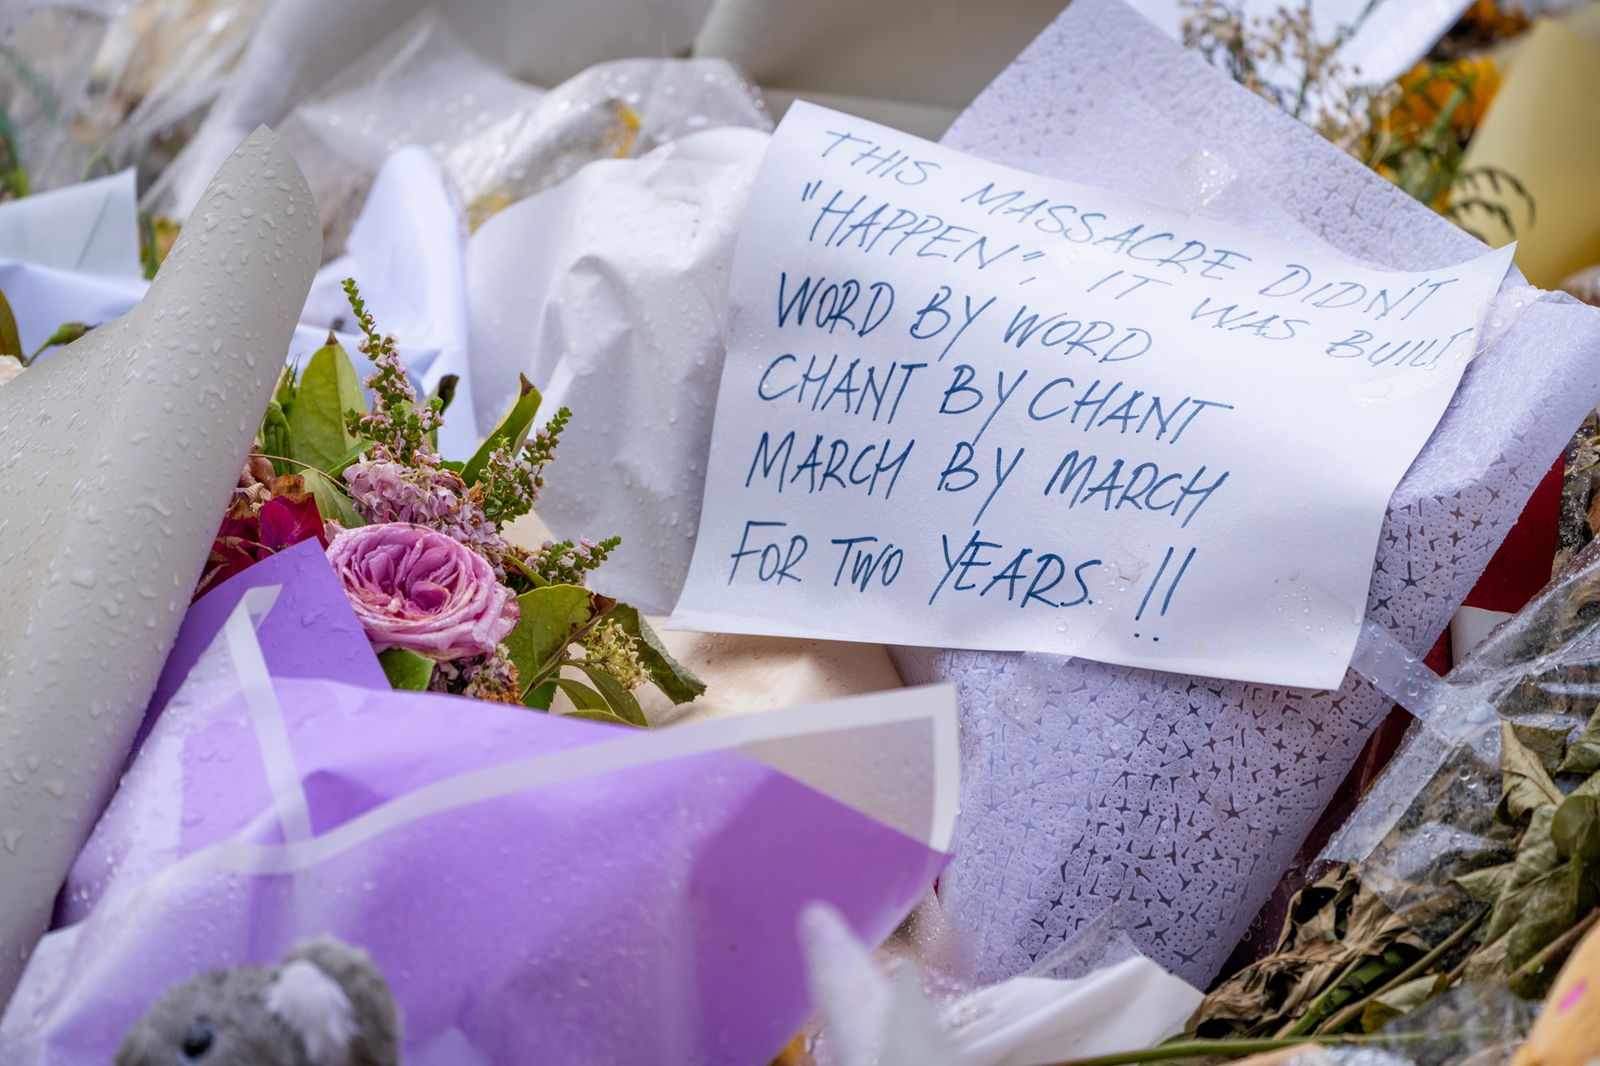 THIS MASSACRE DIDN'T
"HAPPEN", IT WAS BUILT
WORD BY WORD
CHANT BY CHANT
MARCH BY MARCH
FOR TWO YEARS. !!